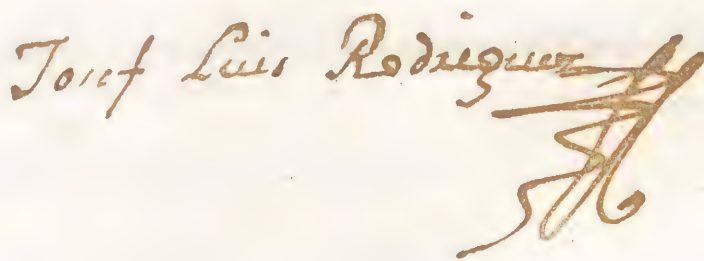 Josef Luis Rodriguez